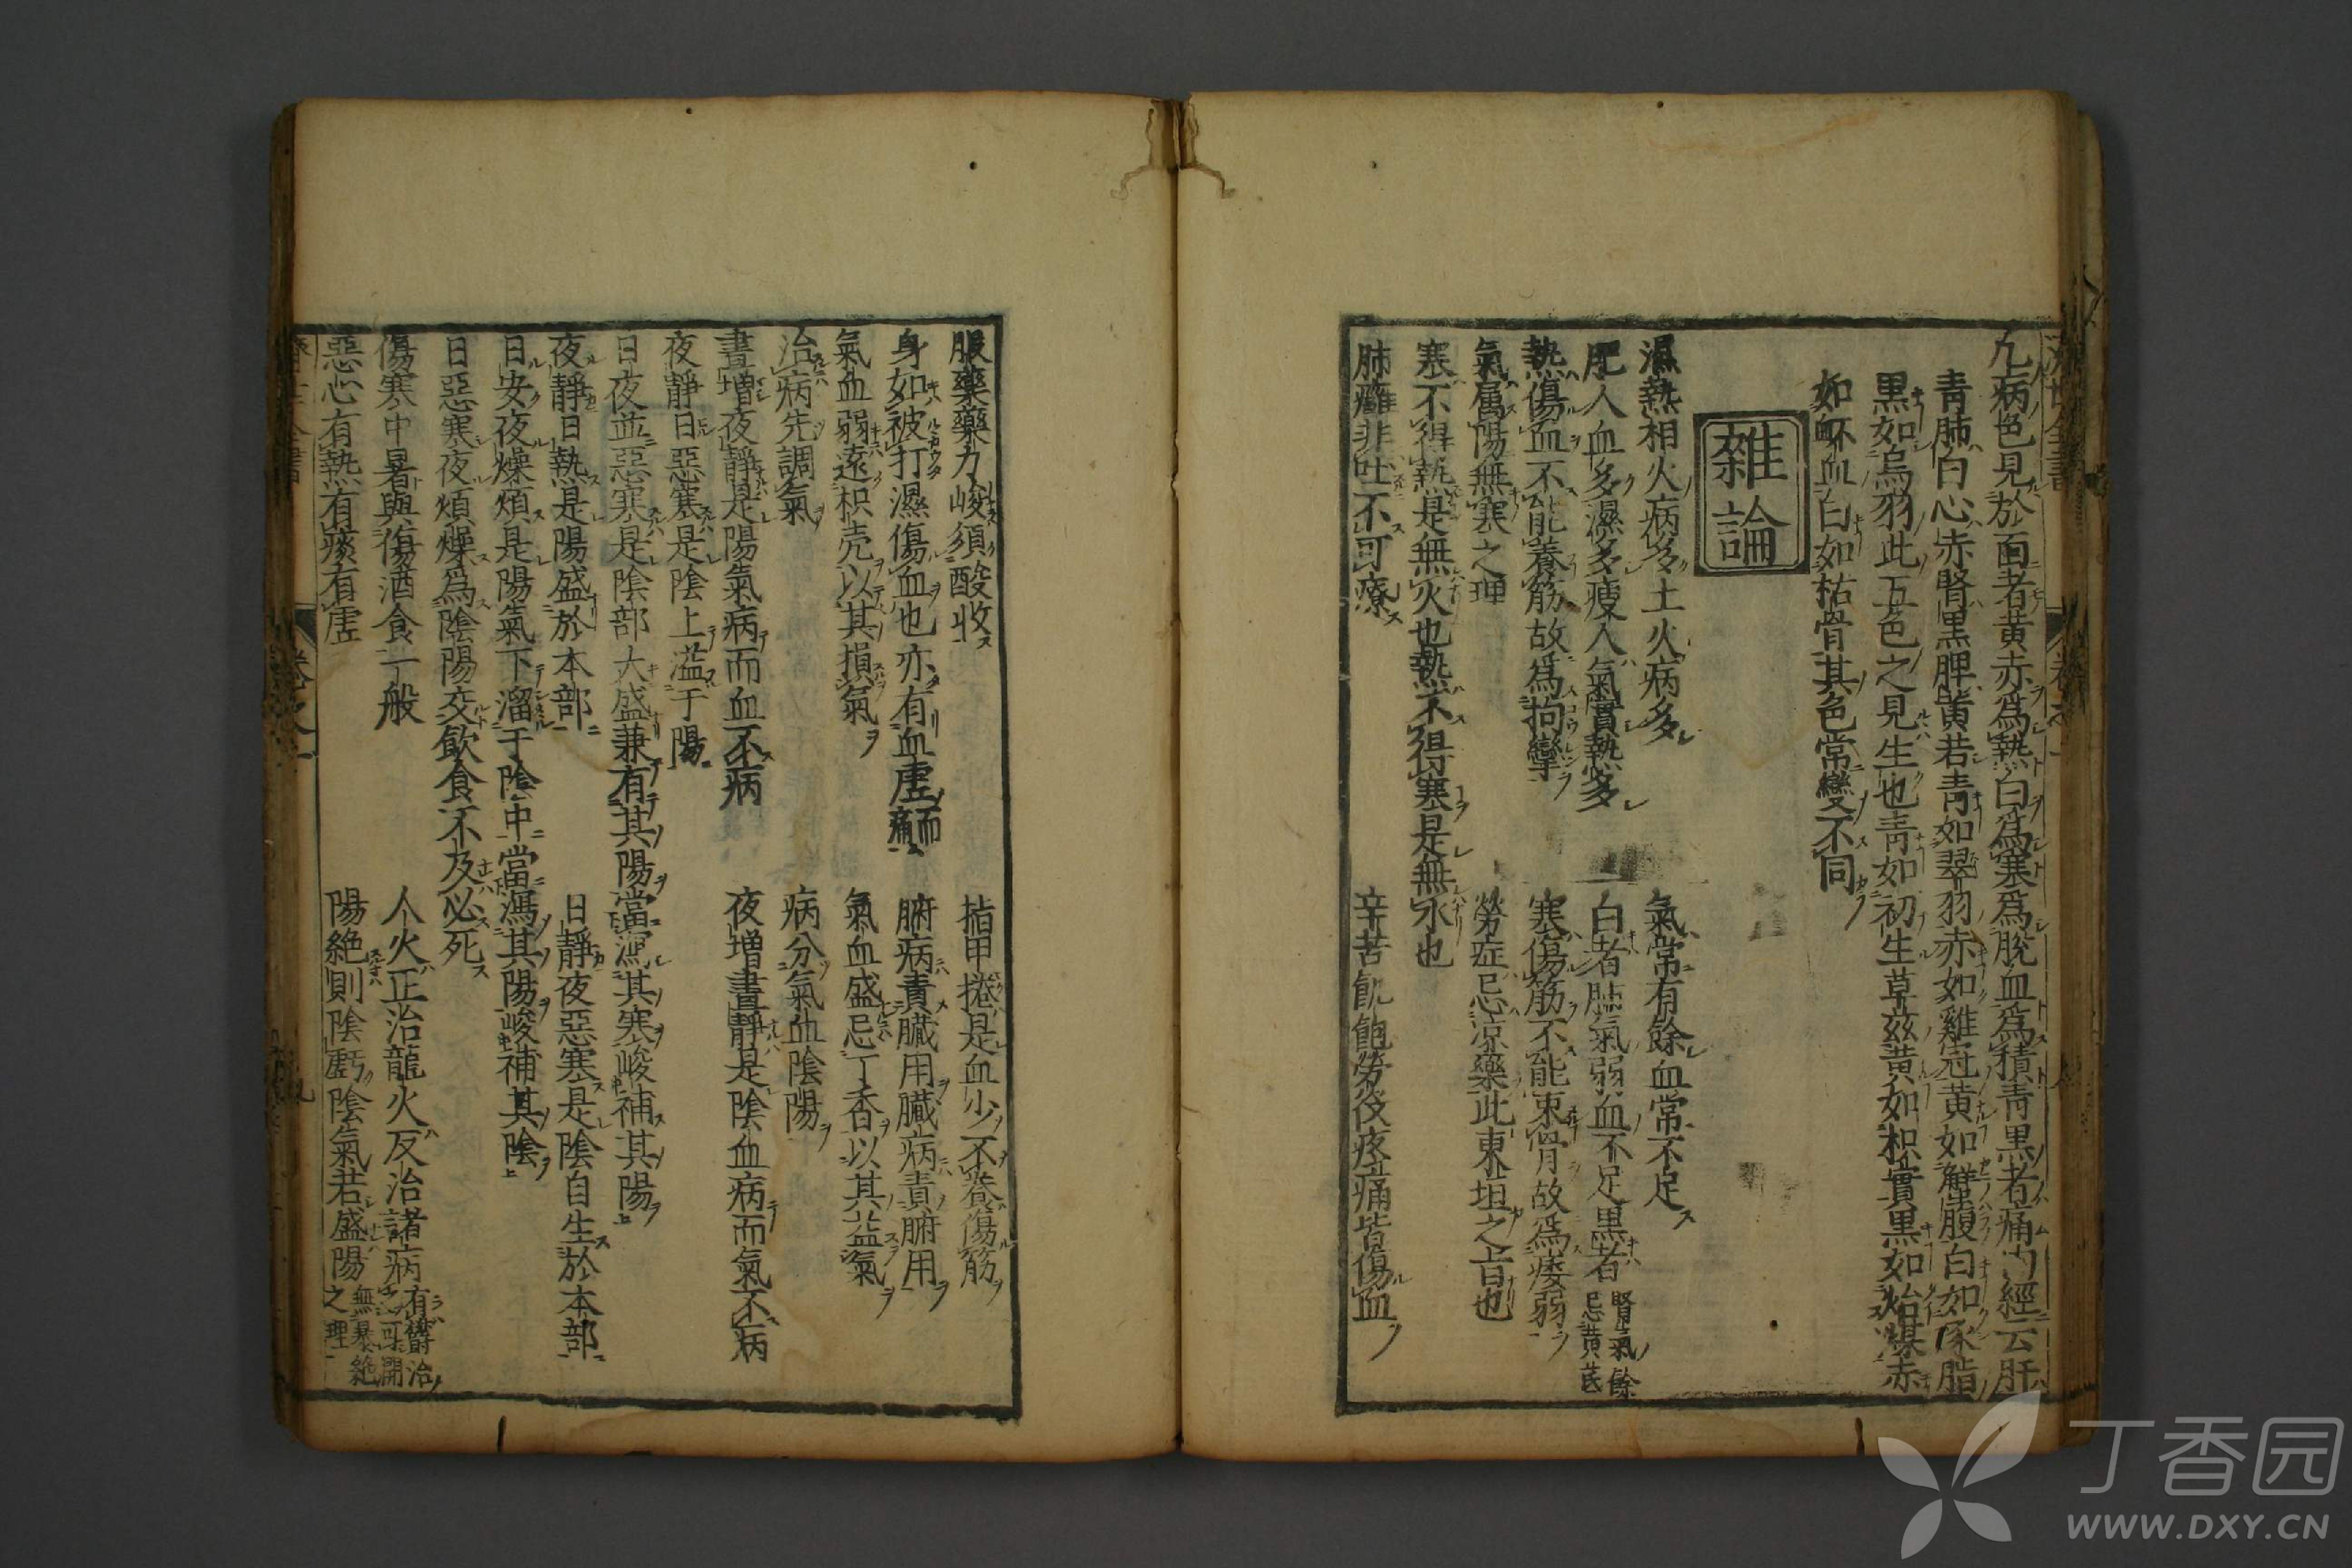 凡病色見於面者黄赤為熱白為寒為脫血為積青黒者痛內經云肝
青肺白心赤腎黒脾黄若青如翠羽赤如雞冠黄如蟹腹白如豕脂
黒如烏羽此五色之見生也青如初生草茲黄如枳實黒如炲煤赤
如衃血白如枯骨其色常變不同
雜論
濕熱相火病多土火病多 氣常有餘血常不足
肥人血多濕多瘦人氣實熱多 白者肺氣弱血不足黒者腎氣餘忌黄芪
熱傷血不能養筋故為拘攣 寒傷筋不能束骨故為痿弱
氣属陽無寒之理 勞症忌凉藥此東垣之旨也
寒不得熱是無火也熱不得寒是無水也
肺癰非吐不可療 辛苦飢飽勞役疼痛皆傷血
服藥藥力峻須酸收 指甲捲是血少不養傷筋
身如被打濕傷血也亦有血虛而痛 腑病責臟用臟病責腑用
氣血弱遠枳壳以其損氣 氣血盛忌丁香以其益氣
治病先調氣 病分氣血陰陽
晝增夜靜是陽氣病而血不病 夜增晝靜是陰血病而氣不病
夜靜日惡寒是陰上溢于陽
日夜並惡寒是陰部大盛兼有其陽當瀉其寒峻補其陽
夜靜日熱是陽盛於本部 日靜夜惡寒是陰自生於本部
日安夜燥煩是陽氣下溜于陰中當瀉其陽峻補其陰
日惡寒夜煩燥為陰陽交飲食不及必死
傷寒中暑與傷酒食一般 人火正治龍火反治諸病有鬱治之可開
惡心有熱有痰有虛 陽絕則陰虧陰氣若盛陽無暴絕之理
丁香园
WWW.DXY.CN